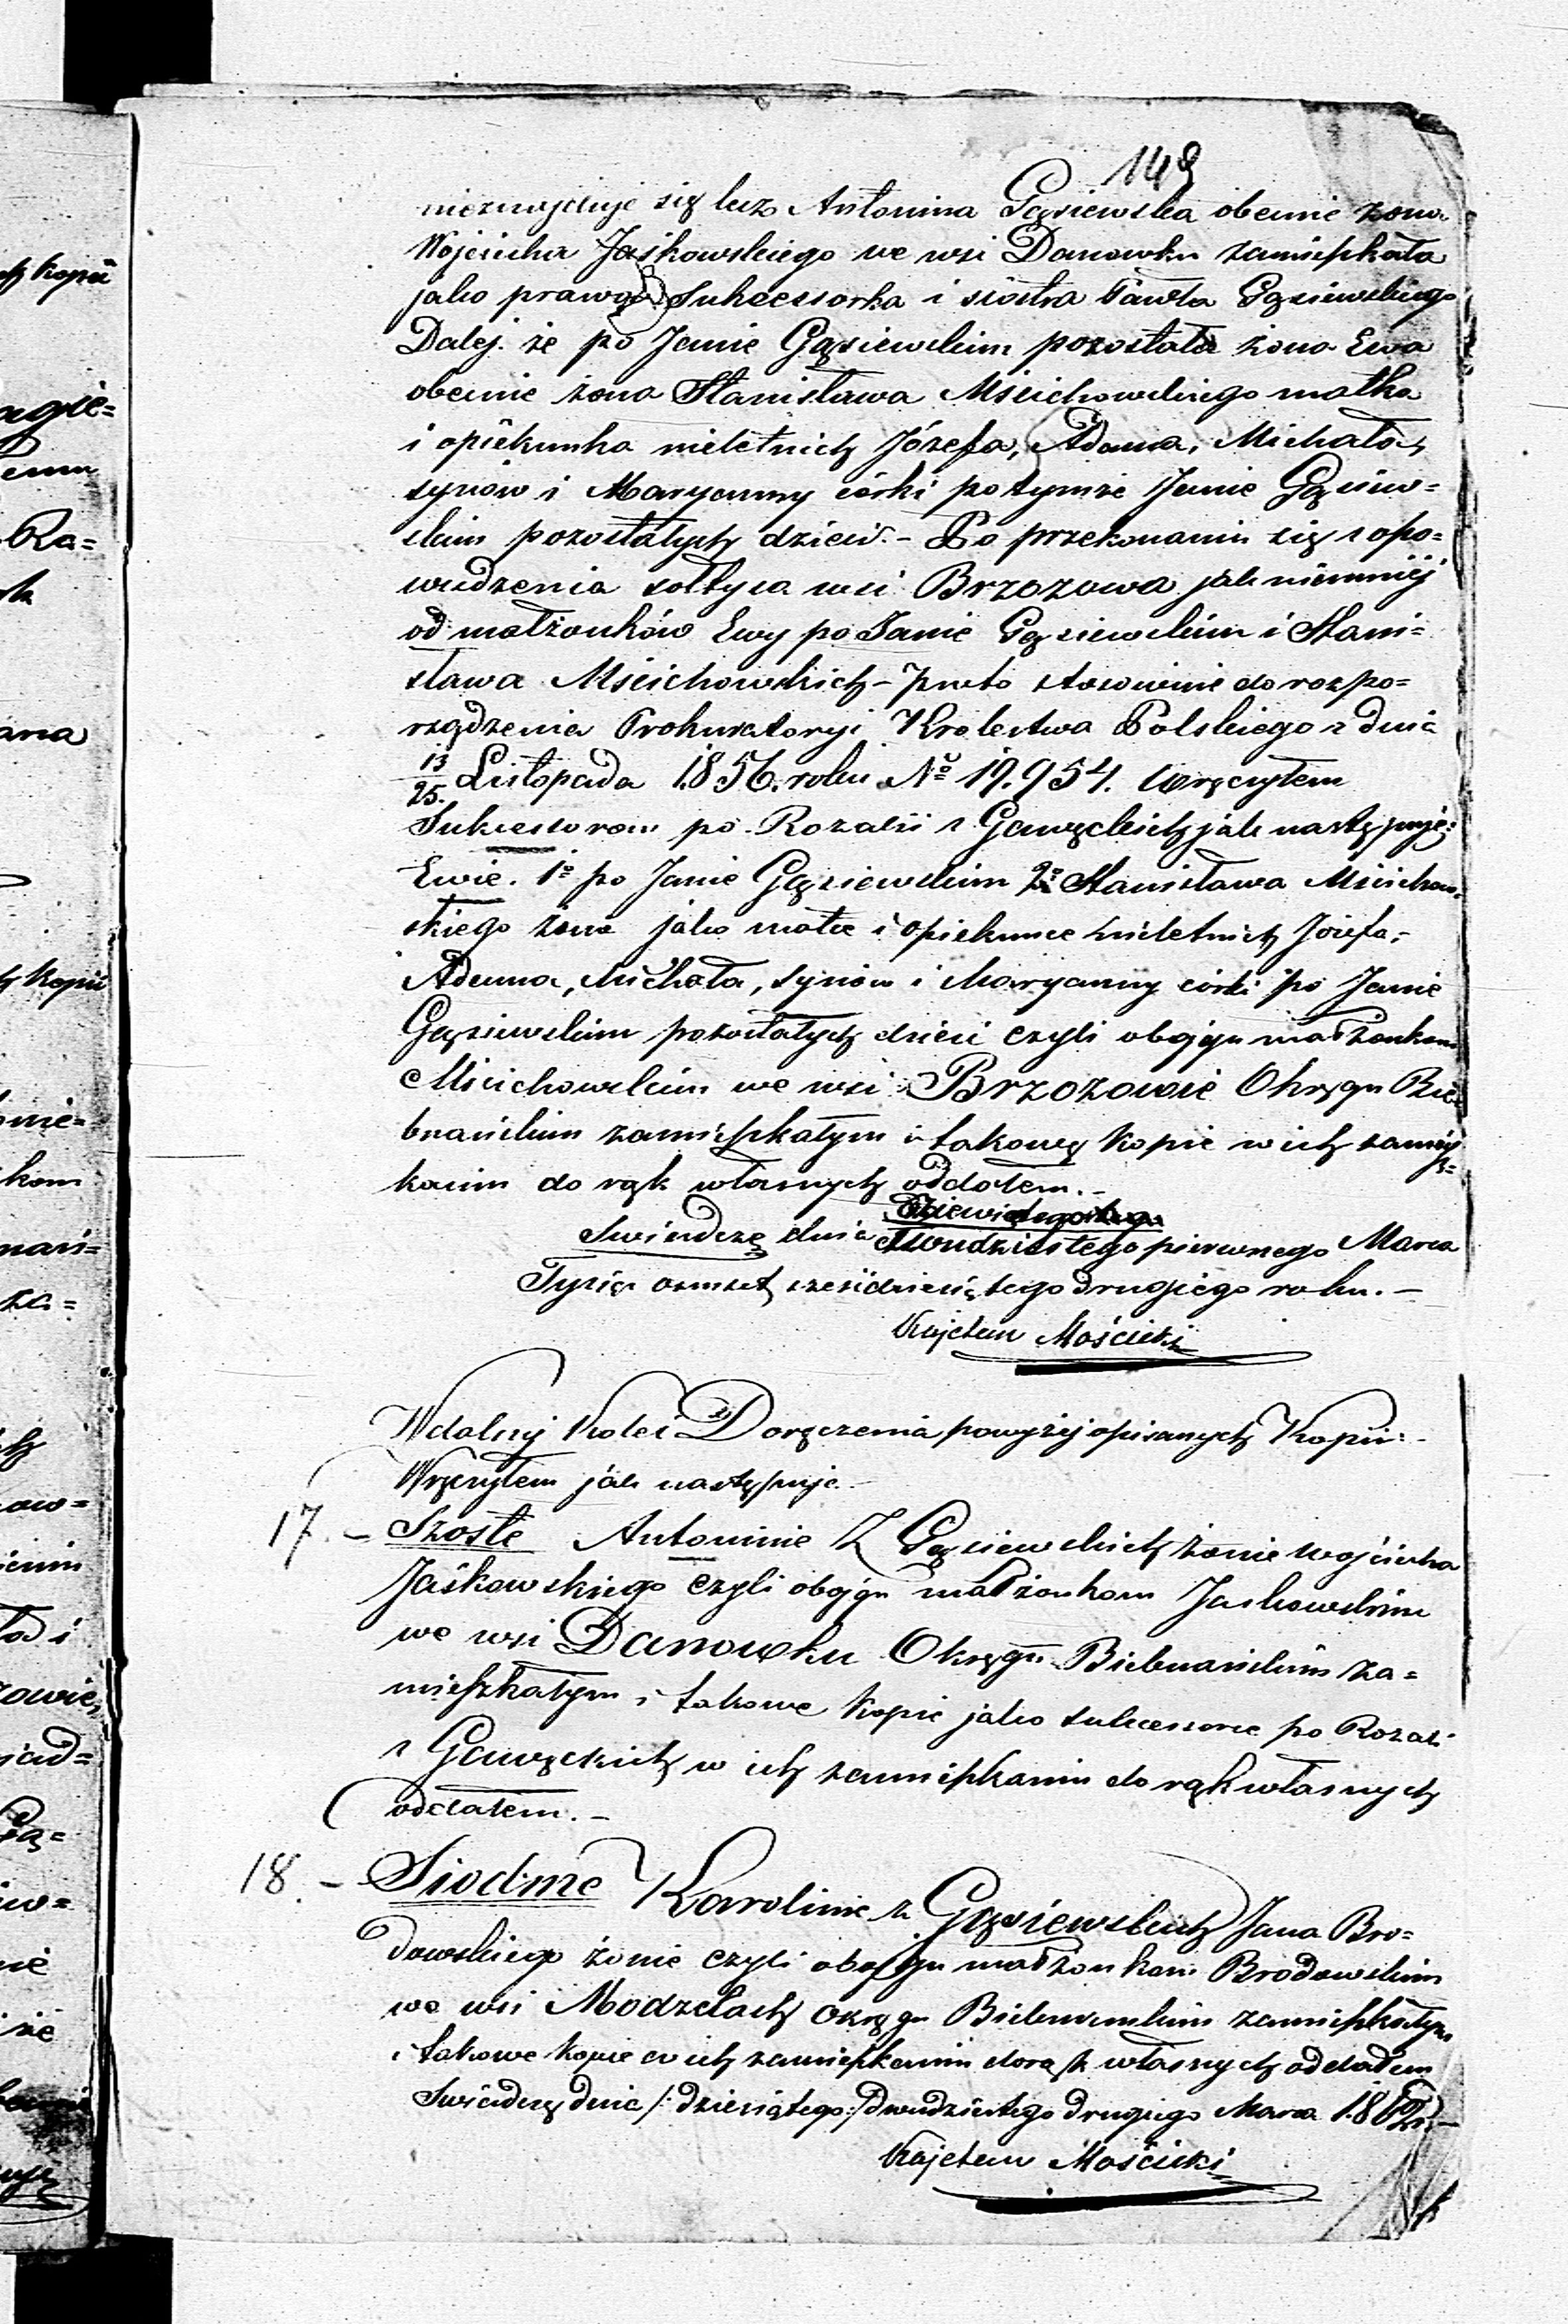 149
nieznajduje się lecz Antonina Gąsiewska obecnie żona
Wojciecha Jaśkowskiego we wsi Danowku zamięszkała
jako prawa Sukcessorka i siostra Pawła Gąsiewskiego
Dalej. że po Janie Gąsiewskim pozostała żona Ewa
obecnie żona Stanisława Mścichowskiego matka
i opiekunka nieletnich Józefa, Adama, Michała,
synów i Maryanny córki po tymże Janie Gąsiew=
skim pozostałych dzieci. - Po przekonaniu się z opo=
wiedzenia sołtysa wsi Brzozowa jak niemniej
od małżonków Ewy po Janie Gąsiewskim i Stani=
sława Mścichowskich - przeto stosownie do rozpo=
rządzenia Prokuratoryi Krolestwa Polskiego z dnia
13/25. Listopada 1856. roku No 19.954. Wręczyłem
Sukcessorom po Rozalii z Gawęckich jak następuje:
Ewie. 1o po Janie Gąsiewskim 2o Stanisława Mścichow
skiego żona jako matce i opiekunce nieletnich Józefa,
Adama, Michała, synów i Maryanny córki po Janie
Gąsiewskim pozostałych dzieci czyli obojgu małżonkom
Mścichowskim we wsi Brzozowie Okręgu Bie
brańskim zamięszkałym i takową kopie w ich zamięsz=
kaniu do rąk własnych oddałem. -
Dziewiątego
Swiadczę dnia dwudziestego pierwszego Marca
Tysiąc ośmset sześćdziesiątego drugiego roku. -
Kajetan Mościcki
W dalszej Kolei Doręczenia powyżej opisanych Kopii
Wręczyłem jak następuje. -
17. - Szoste Antoninie Z Gąsiewskich żonie Wojciecha
Jaśkowskiego czyli obojgu małżonkom Jaskowskim
we wsi Danowku Okręgu Biebrańskim za=
mięszkałym i takowe kopie jako sukcessorce po Rozali
z Gawęckich w ich zamięszkaniu do rąk własnych
oddałem. -
18. - Siodme Karolinie z Gąsiewskich Jana Bro=
dowskiego żonie czyli obojgu małżonkom Brodowskim
we wsi Modzelach Okręgu Biebranskim zamięszkałym
i takowe kopie w ich zamięszkaniu do rąk własnych oddałem
Swiadczę dnia /: dziesiątego :/ dwudziestego drugiego Marca 1862 r. -
Kajetan Mościcki